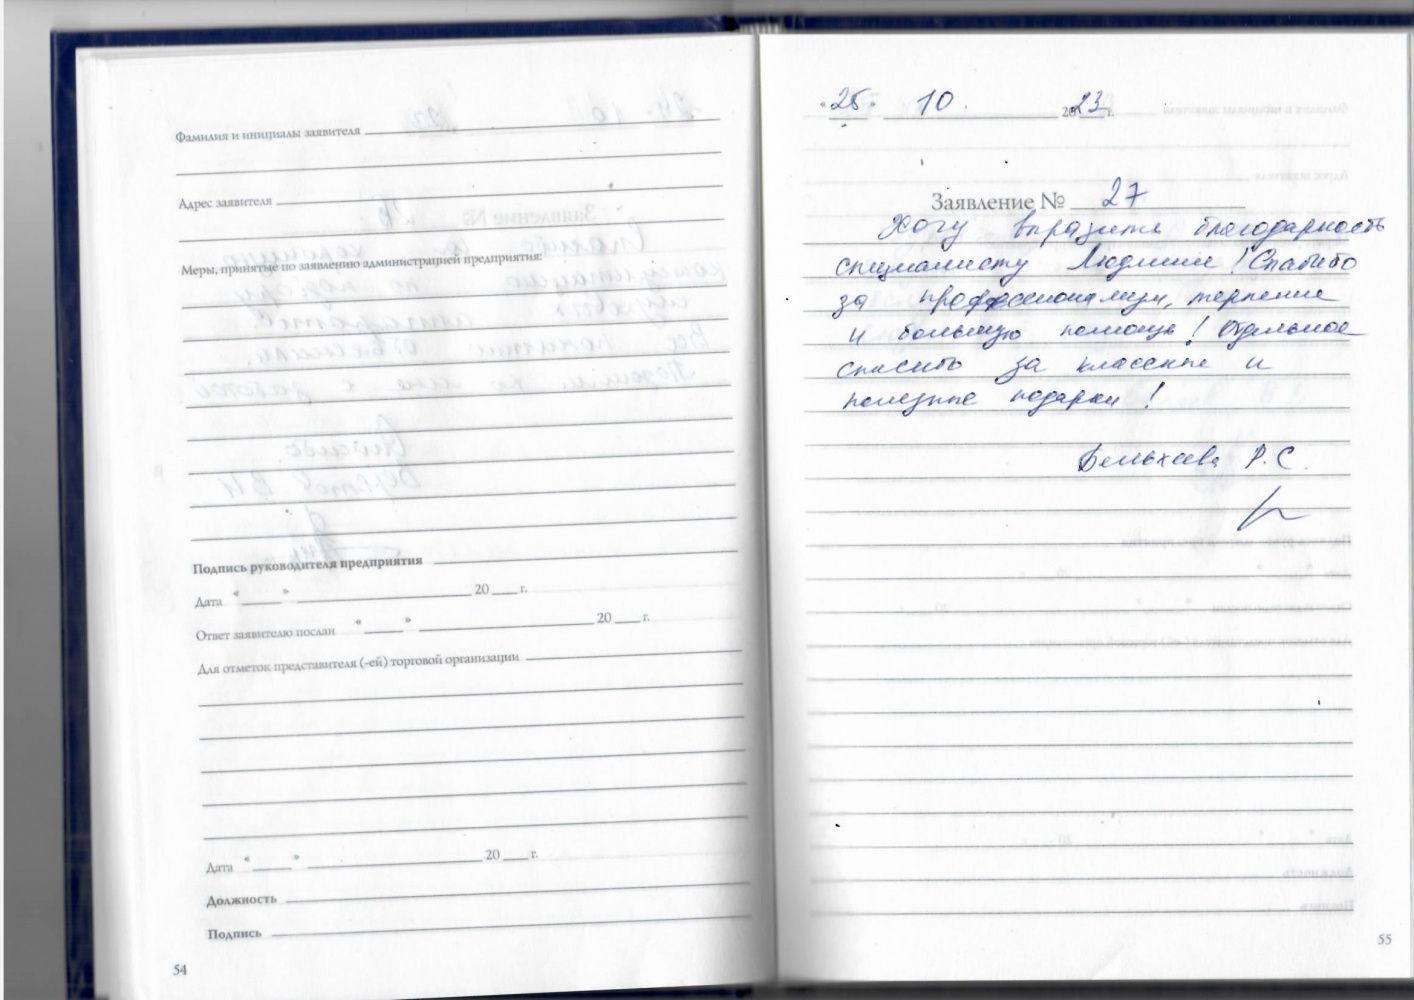 Фамилия и инициалы заявителя
Адрес заявителя
Меры, принятые по заявлению администрацией предприятия:
Подпись руководителя предприятия
Дата « » 20 г.
Ответ заявителю послан « » 20 г.
Для отметок представителя (-ей) торговой организации
Дата « » 20 г.
Должность
Подпись
54
«25» 10. 2023 г.
Заявление № 27
Хочу выразить благодарность
специалисту Людмиле! Спасибо
за профессионализм, терпение
и большую помощь! Отдельное
спасибо за классные и
полезные подарки!
Р. С.
55